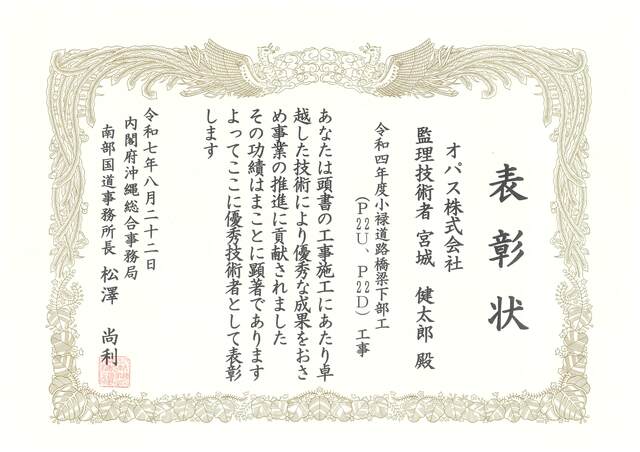 表彰状
オパス株式会社
監理技術者 宮城 健太郎 殿
令和四年度小禄道路橋梁下部工
(P22U、P22D)工事
あなたは頭書の工事施工にあたり卓
越した技術により優秀な成果をおさ
め事業の推進に貢献されました
その功績はまことに顕著であります
よってここに優秀技術者として表彰
します
令和七年八月二十二日
内閣府沖縄総合事務局
南部国道事務所長 松澤 尚利